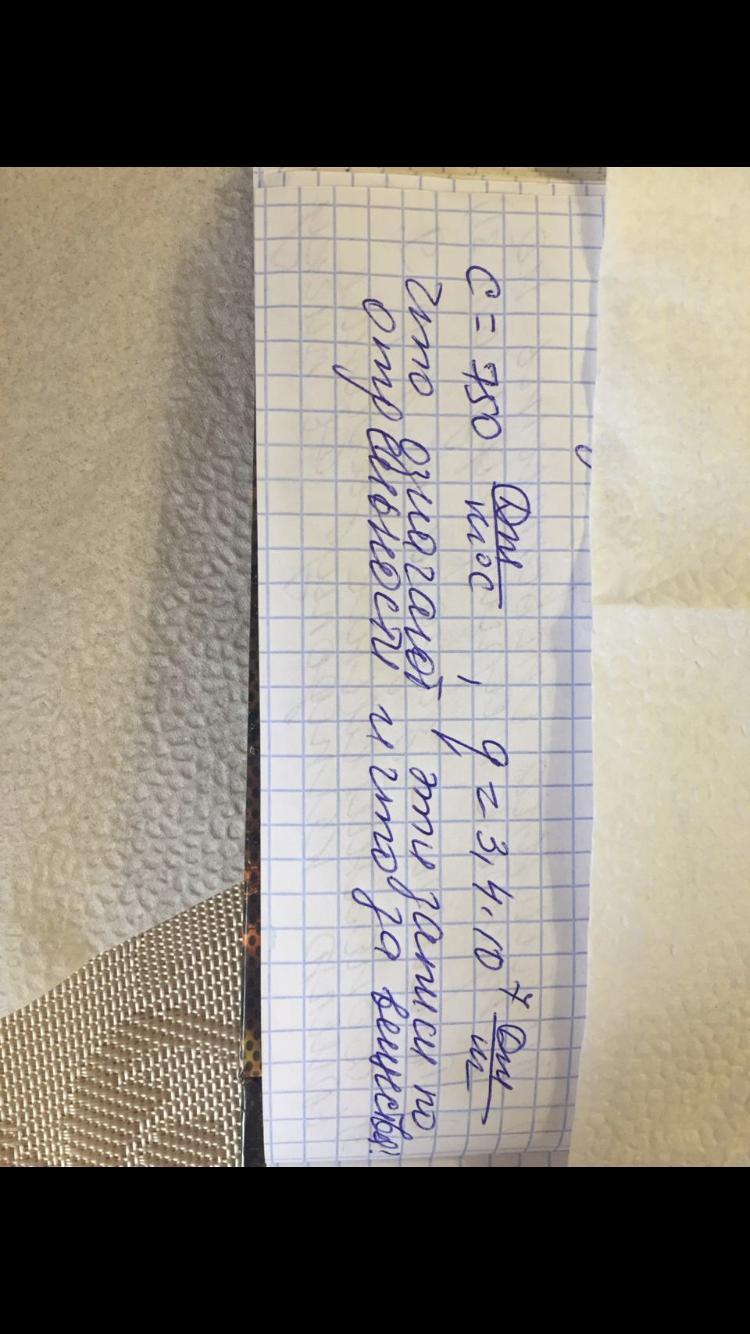 c = 750 Дж/кг°С, q = 3,4·10⁷ Дж/кг
Что означают эти записи по
отдельности и что за вещества?